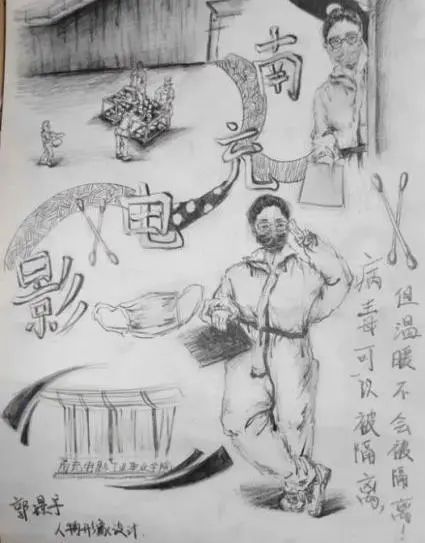 南充电影
病毒可以被隔离,
但温暖不会被隔离!
南充电影工业职业学院
郭
人物形象设计